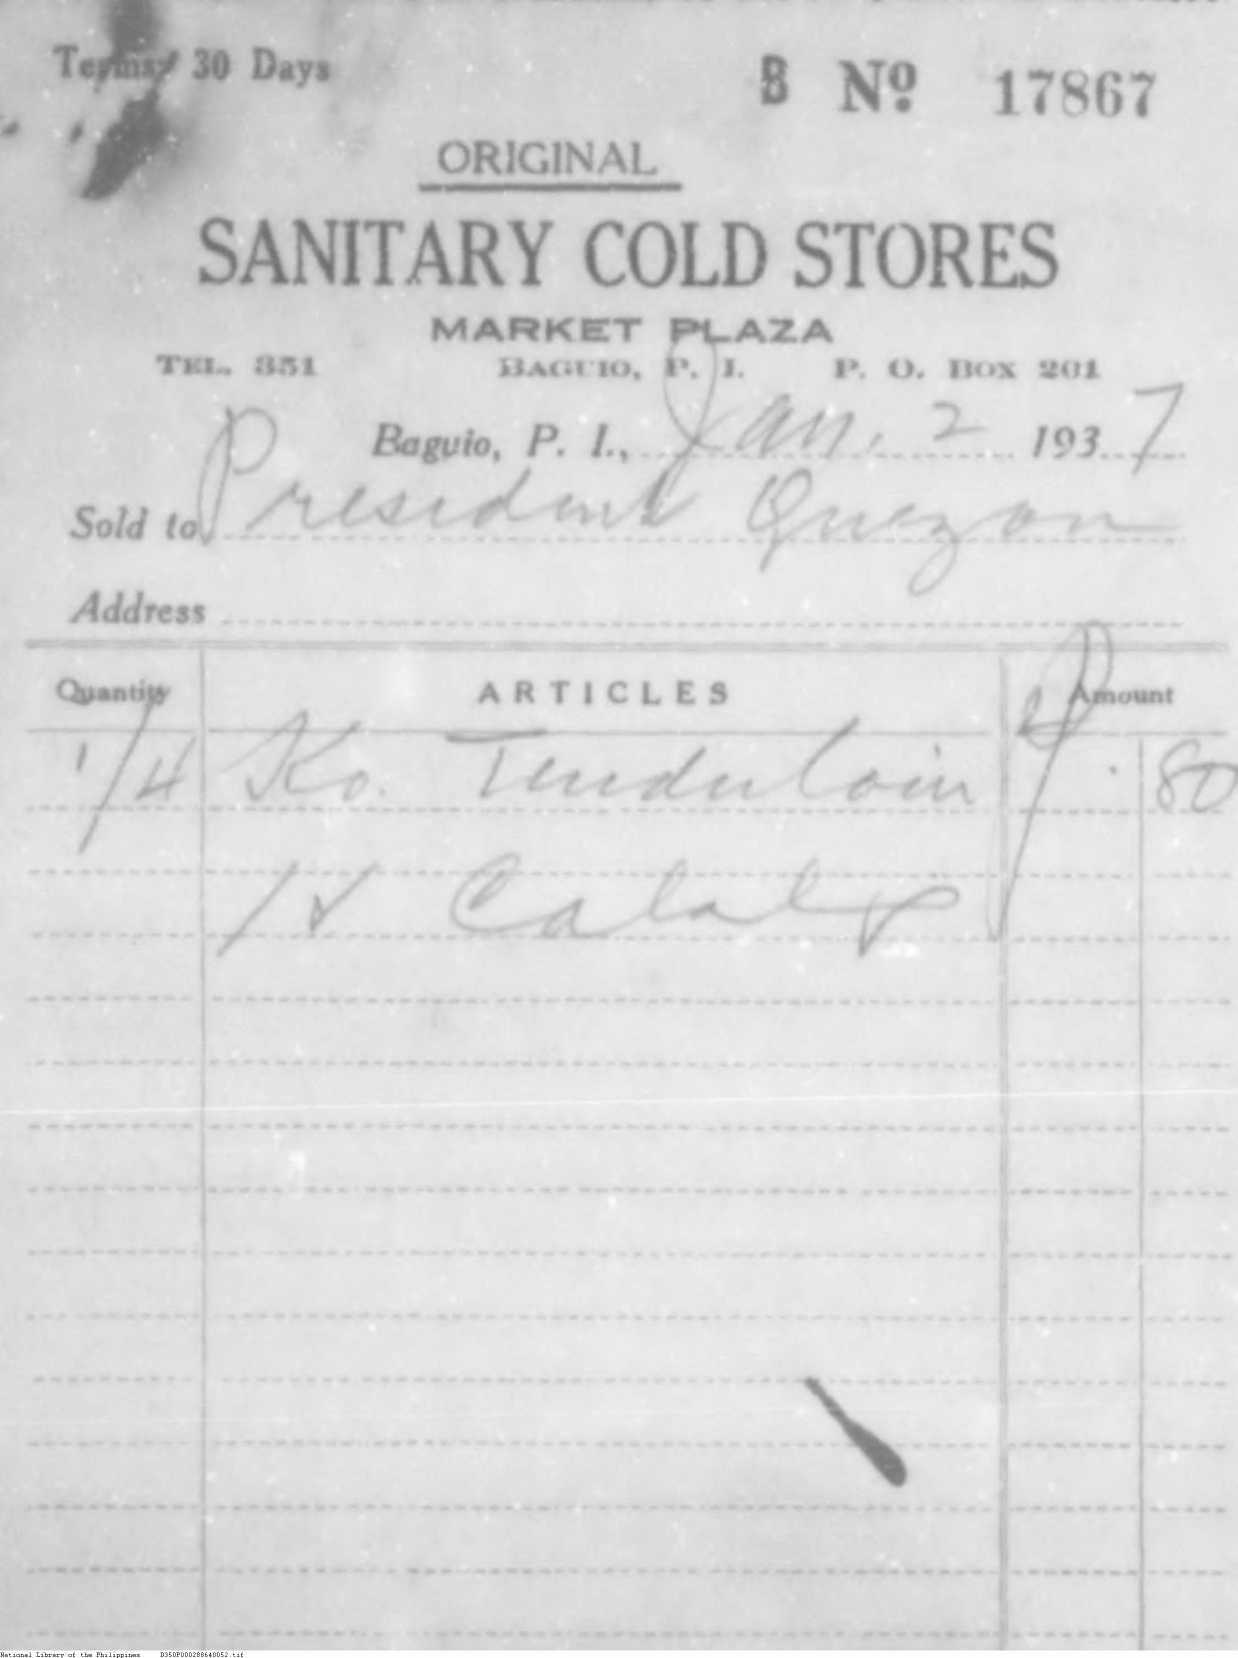 Terms: 30 Days
B Nº 17867
ORIGINAL
SANITARY COLD STORES
MARKET PLAZA
TEL. 351 BAGUIO, P. I. P. O. BOX 201
Baguio, P. I., Jan. 2 1937
Sold to President Quezon
Address
Quantity ARTICLES Amount
1/4 Ko. Tenderloin ₱ . 80
National Library of the Philippines D350P000288640052.tif